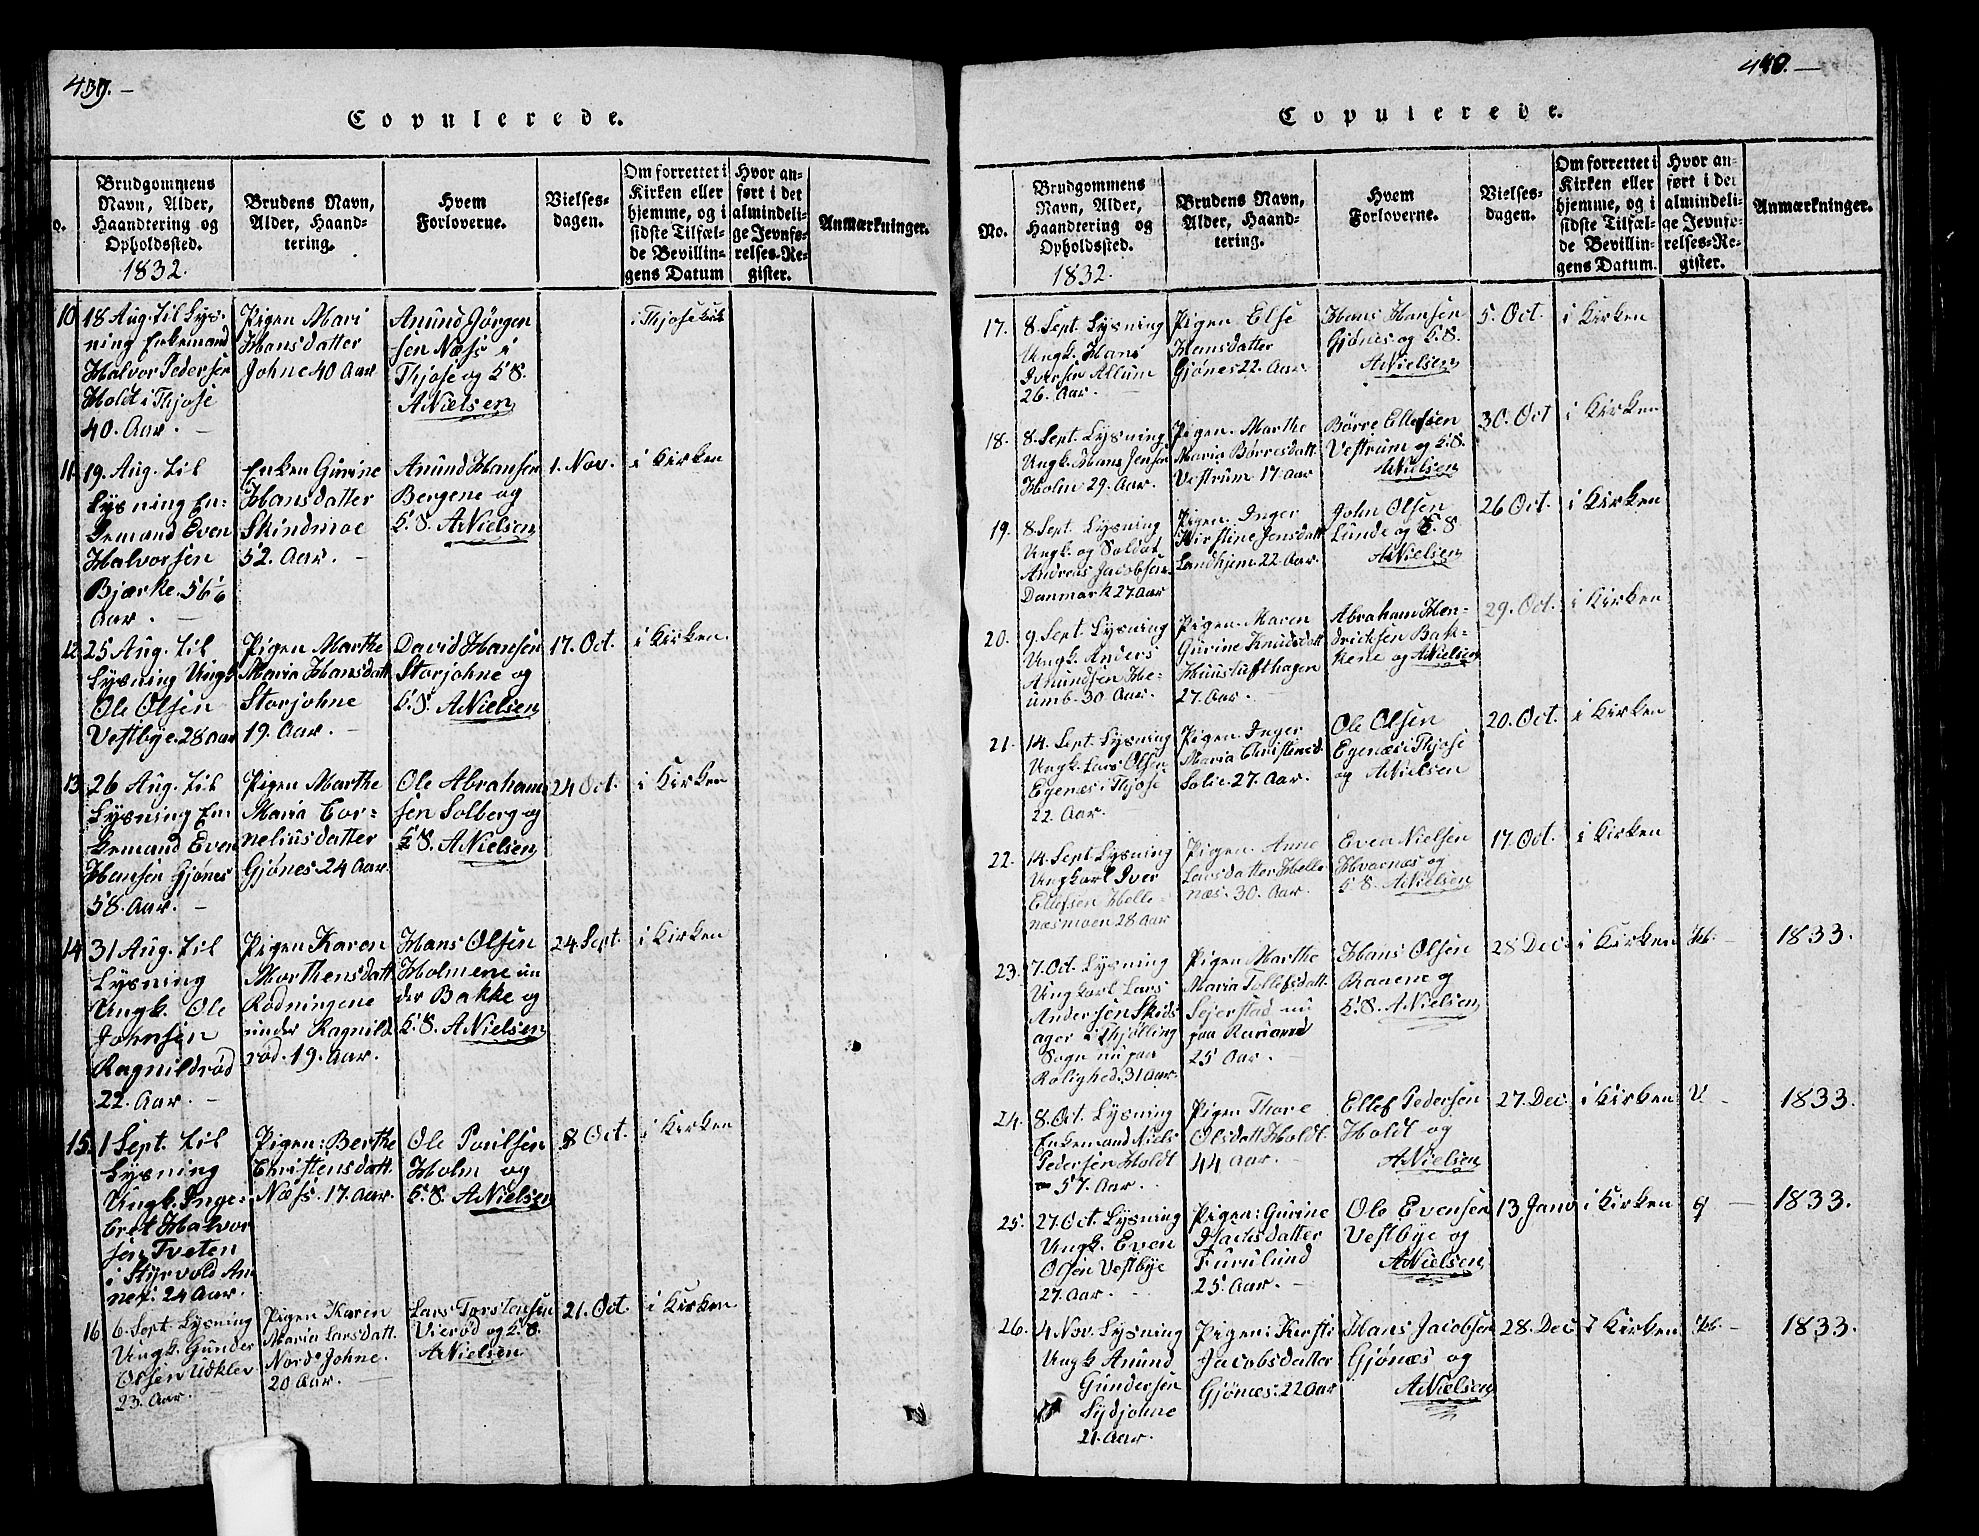 439.—
Copulerede.
o.
Brudgommens
Navn, Alder,
Haandtering og
Opholdssted.
1832.
Brudens Navn,
Alder, Haand-
tering.
Hvem
Forloverne.
Vielses-
dagen.
Om forrettet i
Kirken eller
hjemme, og i
sidste Tilfæl-
de Bevillin-
gens Datum
Hvor an-
ført i det
almindeli-
ge Jevnfø-
relses-Re-
gister.
Anmærkninger.
10
18 Aug. til Lys-
ning Enkemand
Halvor Pedersen
Holdt i Thjose
40. Aar. —
Pigen Mari
Hansdatter
Johne 40 Aar
Anund Jørgen
sen Næss i
Thjose og K.S.
A Nielsen
i Thjose
11.
19. Aug. til
Lysning En-
kemand Even
Halvorsen
Bjærke. 56
Aar. —
Enken Gurine
Hansdatter
Skindmoe
52. Aar. —
Anund Hansen
Bergene og
K.S. A Nielsen
1. Nov.
i Kirken
12
25 Aug. til
Lysning Ungk
Ole Olsen
Vestbye. 28 Aar
Pigen Marthe
Maria Hansdatt
Storjohne
19. Aar. —
David Hansen
Storjohne og
K.S. A Nielsen
17. Oct.
i Kirken
13
26 Aug. til
Lysning En-
kemand Even
Hansen Gjønes
58. Aar. —
Pigen Marthe
Maria Cor-
neliusdatter
Gjønes 24 Aar
Ole Abraham
sen Solberg og
K.S. A Nielsen
24 Oct.
i Kirken
14
31 Aug. til
Lysning
Ungk. Ole
Johnsen
Ragnildrød
22. Aar. —
Pigen Karen
Morthensdatt
Rødningene
under Ragnild
rød. 19. Aar.
Hans Olsen
Holmene un
der Bakke og
K.S. A Nielsen
24. Sept.
i Kirken
15.
1 Sept. til
Lysning
Ungk. Inge-
bret Halvor
sen Tveten
i Styrvold An
nex: 24 Aar.
Pigen: Berthe
Christensdatt.
Næss. 17. Aar.
Ole Poulsen
Holm og
K.S. A Nielsen
8 Oct.
i Kirken
16
6. Sept. Lysning
Ungk. Gunder
Olsen Udklev
23. Aar.
Pigen Karen
Maria Larsdatt.
Nord Johne.
20 Aar. —
Lars Torstensen
Vierød og K.S.
A Nielsen
21. Oct.
i Kirken
440.—
Copulerede.
No.
Brudgommens
Navn, Alder,
Haandtering og
Opholdssted.
1832.
Brudens Navn,
Alder, Haand-
tering.
Hvem
Forloverne.
Vielses-
dagen.
Om forrettet i
Kirken eller
hjemme, og i
sidste Tilfæl-
de Bevillin-
gens Datum.
Hvor an-
ført i det
almindeli-
ge Jevnfø-
relses-Re-
gister.
Anmærkninger.
17.
8. Sept. Lysning
Ungk. Hans
Iversen Allum
26. Aar. —
Pigen Else
Hansdatter
Gjønes 22. Aar
Hans Hansen
Gjønes og K.S.
A Nielsen
5. Oct.
i Kirken
18.
8. Sept. Lysning
Ungk. Hans Jensen
Holm 29. Aar.
Pigen Marthe
Maria Børresdatt.
Vestrum 17 Aar
Børre Ellefsen
Vestrum og K.S.
A Nielsen
30. Oct
i Kirken
19.
8. Sept. Lysning
Ungk. og Soldat
Andreas Jacobsen
Danmark 27 Aar
Pigen Inger
Kirstine Jensdatt
Landhjem 22 Aar.
John Olsen
Lunde og K.S
A Nielsen
26 Oct.
i Kirken
20.
9. Sept. Lysning
Ungk. Anders
Anundsen He-
umb. 30 Aar.
Pigen Maren
Gurine Knudsdatt
Huuslufthagen
27. Aar. —
Abraham Hen-
dricksen Bak-
kene og A Nielsen
29. Oct.
i Kirken
21.
14. Sept. Lysning
Ungk. Lars Olsen
Egenæs i Thjose
22. Aar.
Pigen Inger
Maria Christensd.
Solie. 27. Aar.
Ole Olsen
Egenæs i Thjose
og A Nielsen
20. Oct.
i Kirken
22.
14. Sept Lysning
Ungkarl Iver
Ellefsen Helle-
næsmoen 28 Aar
Pigen Anne
Larsdatter Helle
næs. 30. Aar.
Even Nielsen
Hvarnæs og
K.S. A Nielsen
17. Oct.
i Kirken
23.
7. Oct. Lysning
Ungkarl Lars
Andersen Skids
ager i Thjølling
Sogn nu paa
Rolighed. 31 Aar.
Pigen Marthe
Maria Tollefsdatt.
Sejerstad nu
paa
25 Aar. —
Hans Olsen
Raaene og
K.S. A Nielsen
28 Dec.
i Kirken
1833.
24.
8. Oct. Lysning
Enkemand Niels
Pedersen Holdt
57. Aar.
Pigen Thore
Olsdatt Holdt.
44 Aar. —
Ellef Pedersen
Holdt og
A Nielsen
27. Dec
i Kirken
V. —
1833.
25.
27. Oct Lysning
Ungk. Even
Olsen Vestbye
27. Aar.
Pigen: Gurine
Isachsdatter
Furulund
25 Aar. —
Ole Evensen
Vestbye og
A Nielsen
13 Janv
i Kirken
1833.
26.
4 Nov. Lysning
Ungk Anund
Gundersen
Sydjohne
21. Aar.
Pigen: Kirsti
Jacobsdatter
Gjønæs: 22 Aar
Hans Jacobsen
Gjønæs og
A Nielsen
28. Dec
i Kirken
1833.